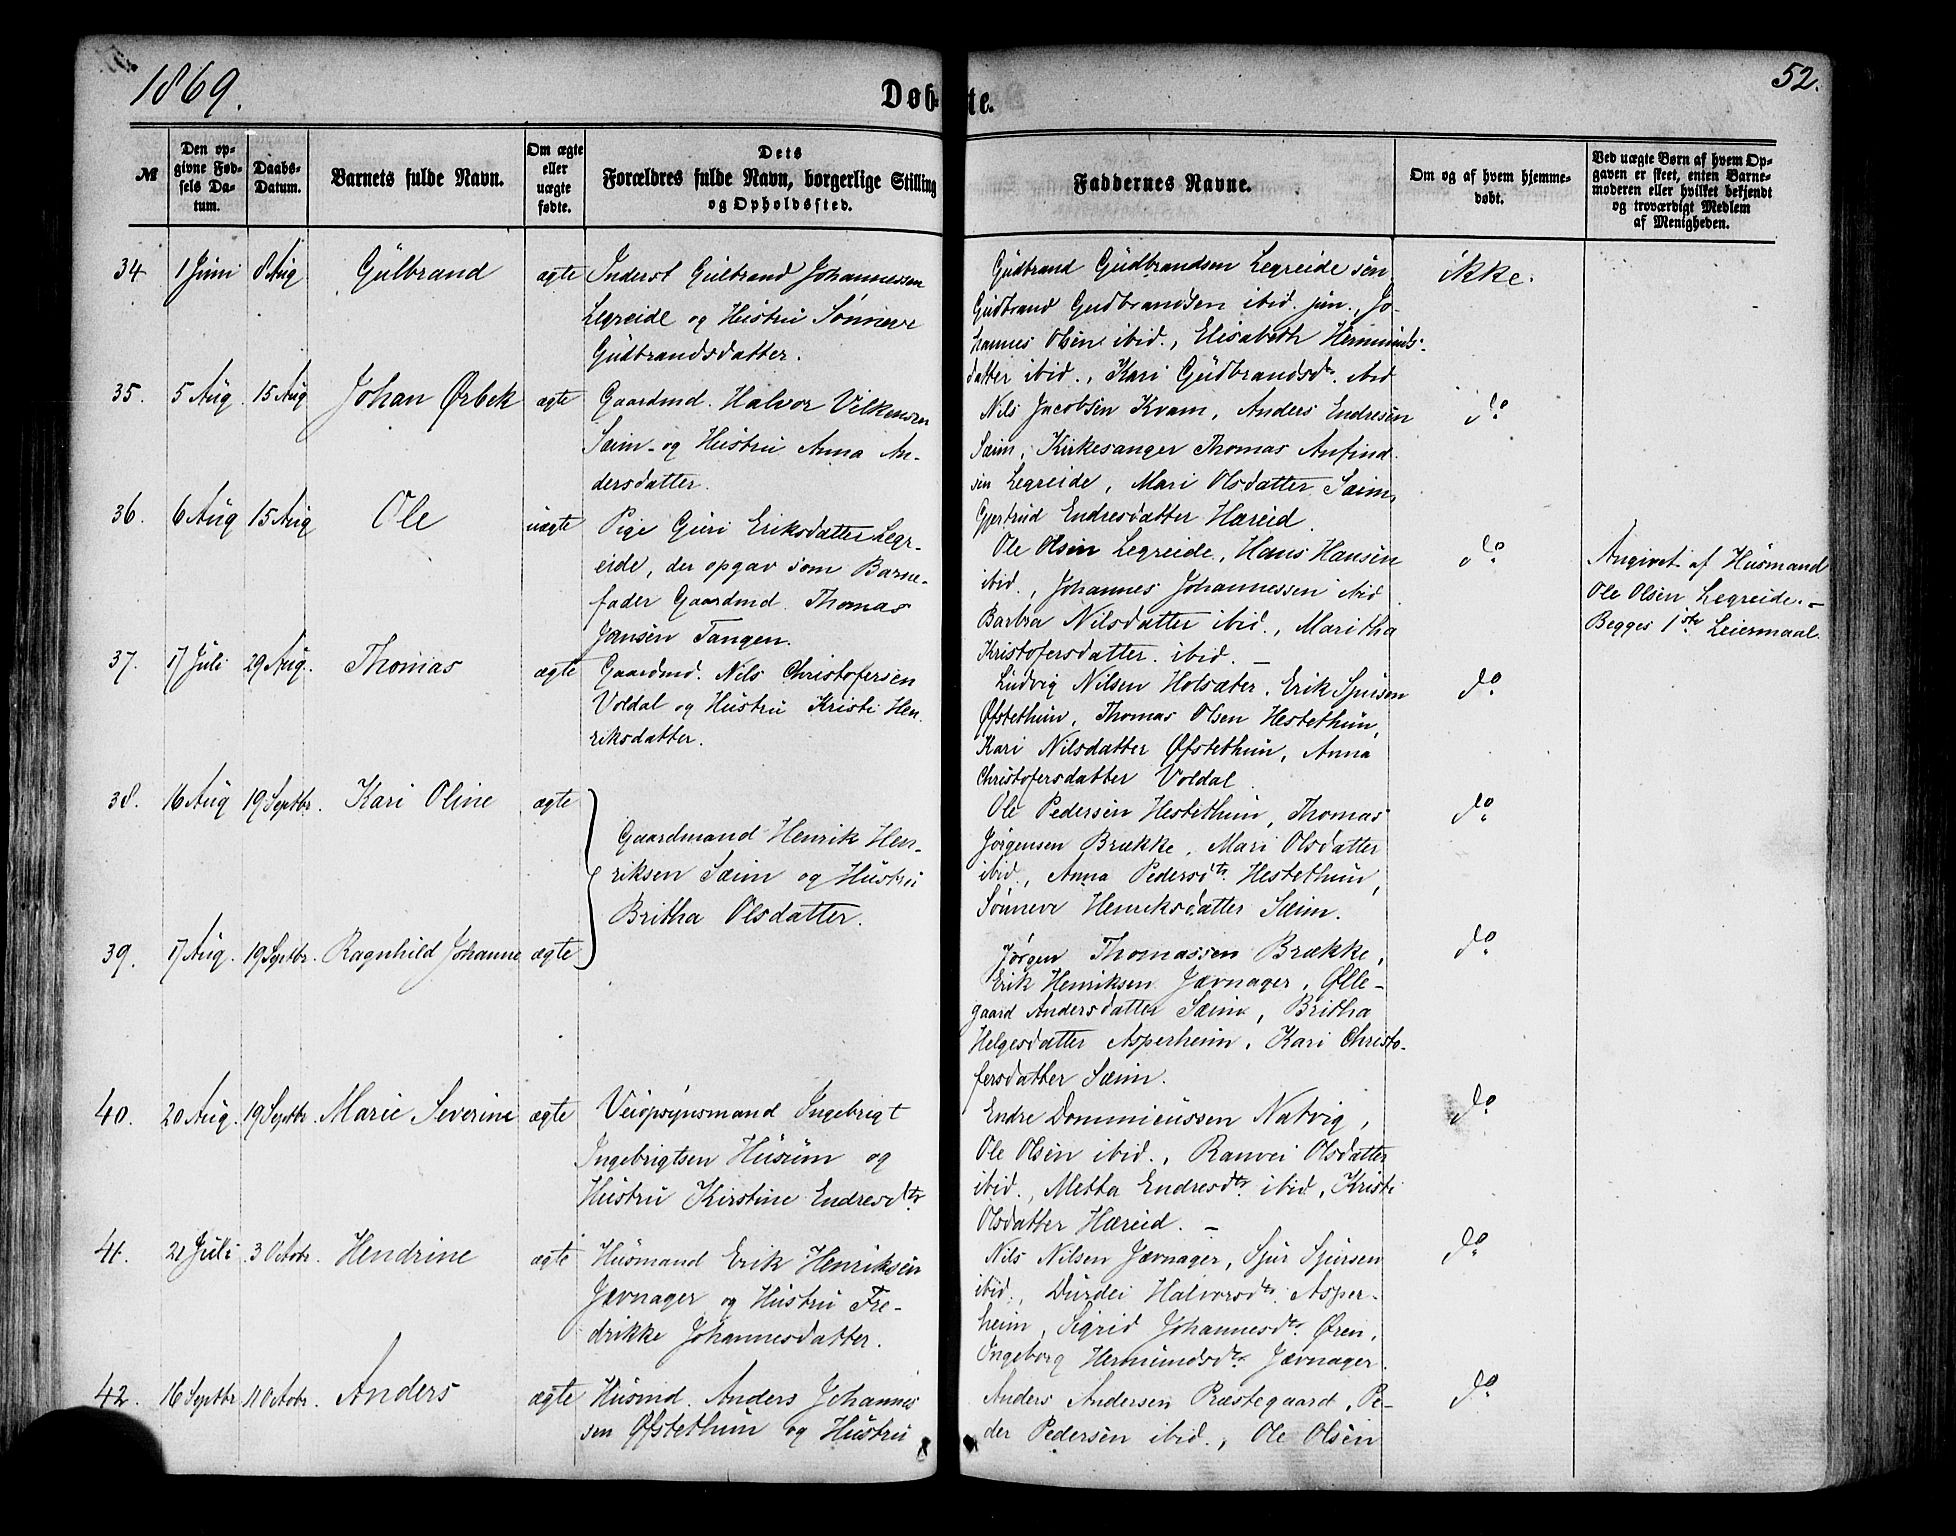 1869.
Døbte.
52.
№
Den opgivne Fødsels Datum.
Daabs-Datum.
Barnets fulde Navn.
Om ægte eller uægte fødte.
Dets Forældres fulde Navn, borgerlige Stilling og Opholdssted.
Faddernes Navne.
Om og af hvem hjemmedøbt.
Ved uægte Børn af hvem Opgaven er skeet, enten Barnemoderen eller hvilket bekjendt og troværdigt Medlem af Menigheden.
34 1 Juni 8 Aug Gulbrand ægte
Inderst Gulbrand Johannessen
Legreide og Hustru Sønneve
Gudbrandsdatter.
Gudbrand Gudbrandsen Legreide sen.
Gudbrand Gudbrandsen ibid. jun., Jo-
hannes Olsen ibid., Elisabeth Hermunds-
datter ibid., Kari Gudbrandsdr. ibid
ikke.
35. 5 Aug. 15 Aug Johan Ørbek ægte
Gaardmd. Halvor Vilkensen
Sæim og Hustru Anna An-
dersdatter.
Nils Jacobsen Kvam, Anders Endresen
Sæim, Kirkesanger Thomas Anfind-
sen Legreide, Mari Olsdatter Sæim,
Gjertrud Endresdatter Hæreid.
do.
36. 6 Aug 15 Aug Ole uægte
Pige Guri Eriksdatter Legr-
eide, der opgav som Barne-
fader Gaardmd. Thomas
Jansen Tangen.
Ole Olsen Legreide, Hans Hansen
ibid., Johannes Johannessen ibid.
Barbra Nilsdatter ibid., Maritha
Kristofersdatter ibid. –
do.
Angivet af Husmand
Ole Olsen Legreide. –
Begges 1ste Leiermaal.
37. 17 Juli 29 Aug. Thomas ægte
Gaardmd. Nils Christofersen
Voldal og Hustru Kristi Hen-
riksdatter.
Ludvig Nilsen Hotsæter, Erik Sjursen
Øfstethun, Thomas Olsen Hestethun,
Kari Nilsdatter Øfstethun, Anna
Christofersdatter Voldal.
do.
38. 16 Aug 19 Septbr. Kari Oline ægte
Gaardmand Henrik Hen-
riksen Sæim og Hustru
Britha Olsdatter.
Ole Pedersen Hestethun, Thomas
Jørgensen Brække, Mari Olsdatter
ibid., Anna Pedersdtr. Hestethun,
Sønneve Henriksdatter Sæim.
do.
39. 17 Aug. 19 Septbr. Ragnhild Johanne ægte
Jørgen Thomassen Brække,
Erik Henriksen Jævnager, Ølle-
gaard Andersdatter Sæim, Britha
Helgesdatter Asperheim, Kari Christo-
fersdatter Sæim.
do.
40. 20 Aug. 19 Septbr. Marie Severine ægte
Veiopsynsmand Ingebrigt
Ingebrigtsen Husum og
Hustru Kirstine Endresdtr
Endre Dominicussen Natvig,
Ole Olsen ibid., Ranvei Olsdatter
ibid., Metta Endresdtr. ibid, Kristi
Olsdatter Hæreid. –
do.
41. 21 Juli 3 Octobr. Hendrine ægte
Husmand Erik Henriksen
Jævnager og Hustru Fre-
drikke Johannesdatter.
Nils Nilsen Jævnager, Sjur Sjursen
ibid., Durdei Halvorsdtr. Asper-
heim, Sigrid Johannesdtr. Øren,
Ingeborg Hermundsdtr. Jævnager.
do.
42. 16 Septbr Octobr. Anders ægte
Husmd. Anders Johannes
sen Øfstethun og Hustru
Anders Andersen Præstegaard, Pe-
der Pedersen ibid., Ole Olsen
do.